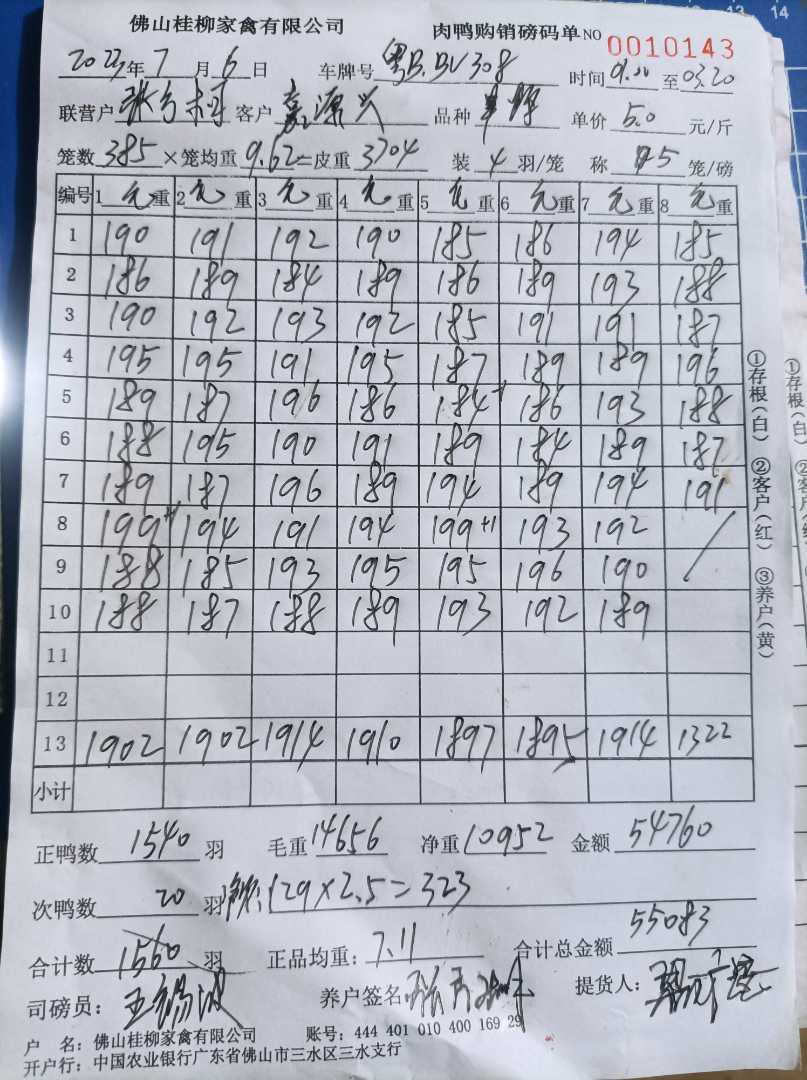 佛山桂柳家禽有限公司 肉鸭购销磅码单 NO 0010143
2023年7月6日 车牌号 粤B.BV308 时间 01.00 至 03.20
联营户 客户 嘉源兴 品种 单价 5.0 元/斤
笼数 385 ×笼均重 9.62=皮重 3704 装 4 羽/笼 称 5 笼/磅
编号 1 毛 重 2 毛 重 3 毛 重 4 毛 重 5 毛 重 6 毛 重 7 毛 重 8 毛 重
1 190 191 192 190 185 186 194 185
2 186 189 184 189 186 189 193 188
3 190 192 193 192 185 191 191 187
4 195 195 191 195 187 189 189 196
5 189 187 196 186 184 186 193 188
6 188 195 190 191 189 184 189 187
7 189 187 196 189 194 189 194 191
8 199+1 194 191 194 199+1 193 192
9 188 185 193 195 195 196 190
10 188 187 188 189 193 192 189
11
12
13 1902 1902 1914 1910 1897 1895 1914 1322
小计
①存根(白) ②客户(红) ③养户(黄)
正鸭数 1540 羽 毛重 14656 净重 10952 金额 54760
次鸭数 20 羽 129×2.5=323
合计数 1560 羽 正品均重: 7.11 合计总金额 55083
司磅员: 王锡 养户签名 提货人:
户 名: 佛山桂柳家禽有限公司 账号: 444 401 010 400 169 29
开户行: 中国农业银行广东省佛山市三水区三水支行
①存根(白) ②客户(红
13 14